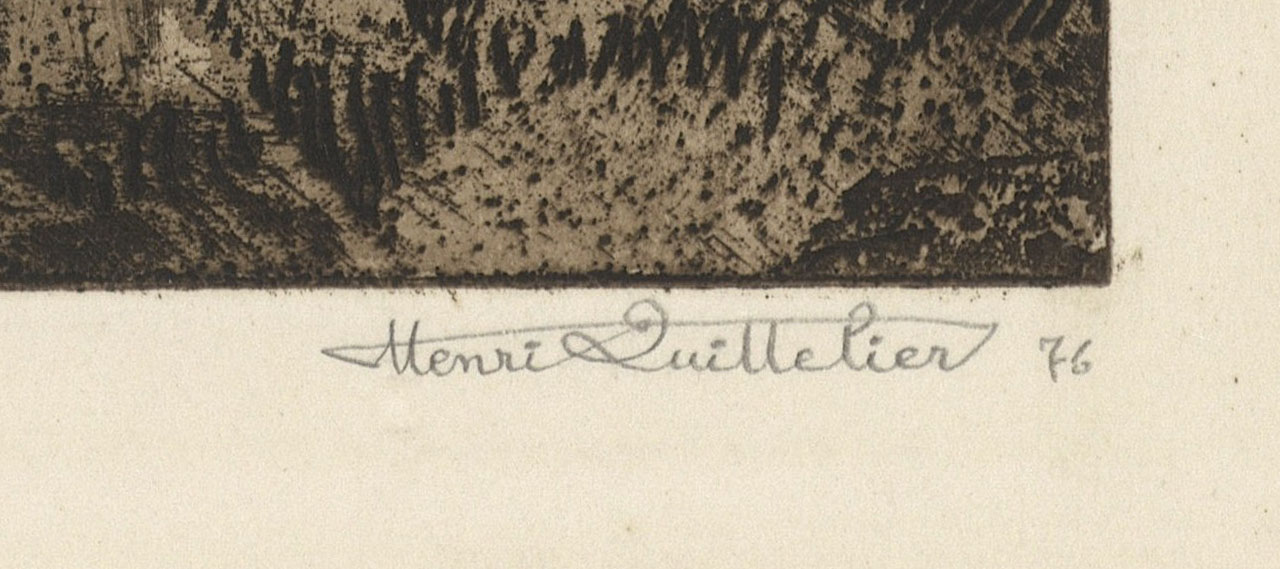 Henri Quittelier 76